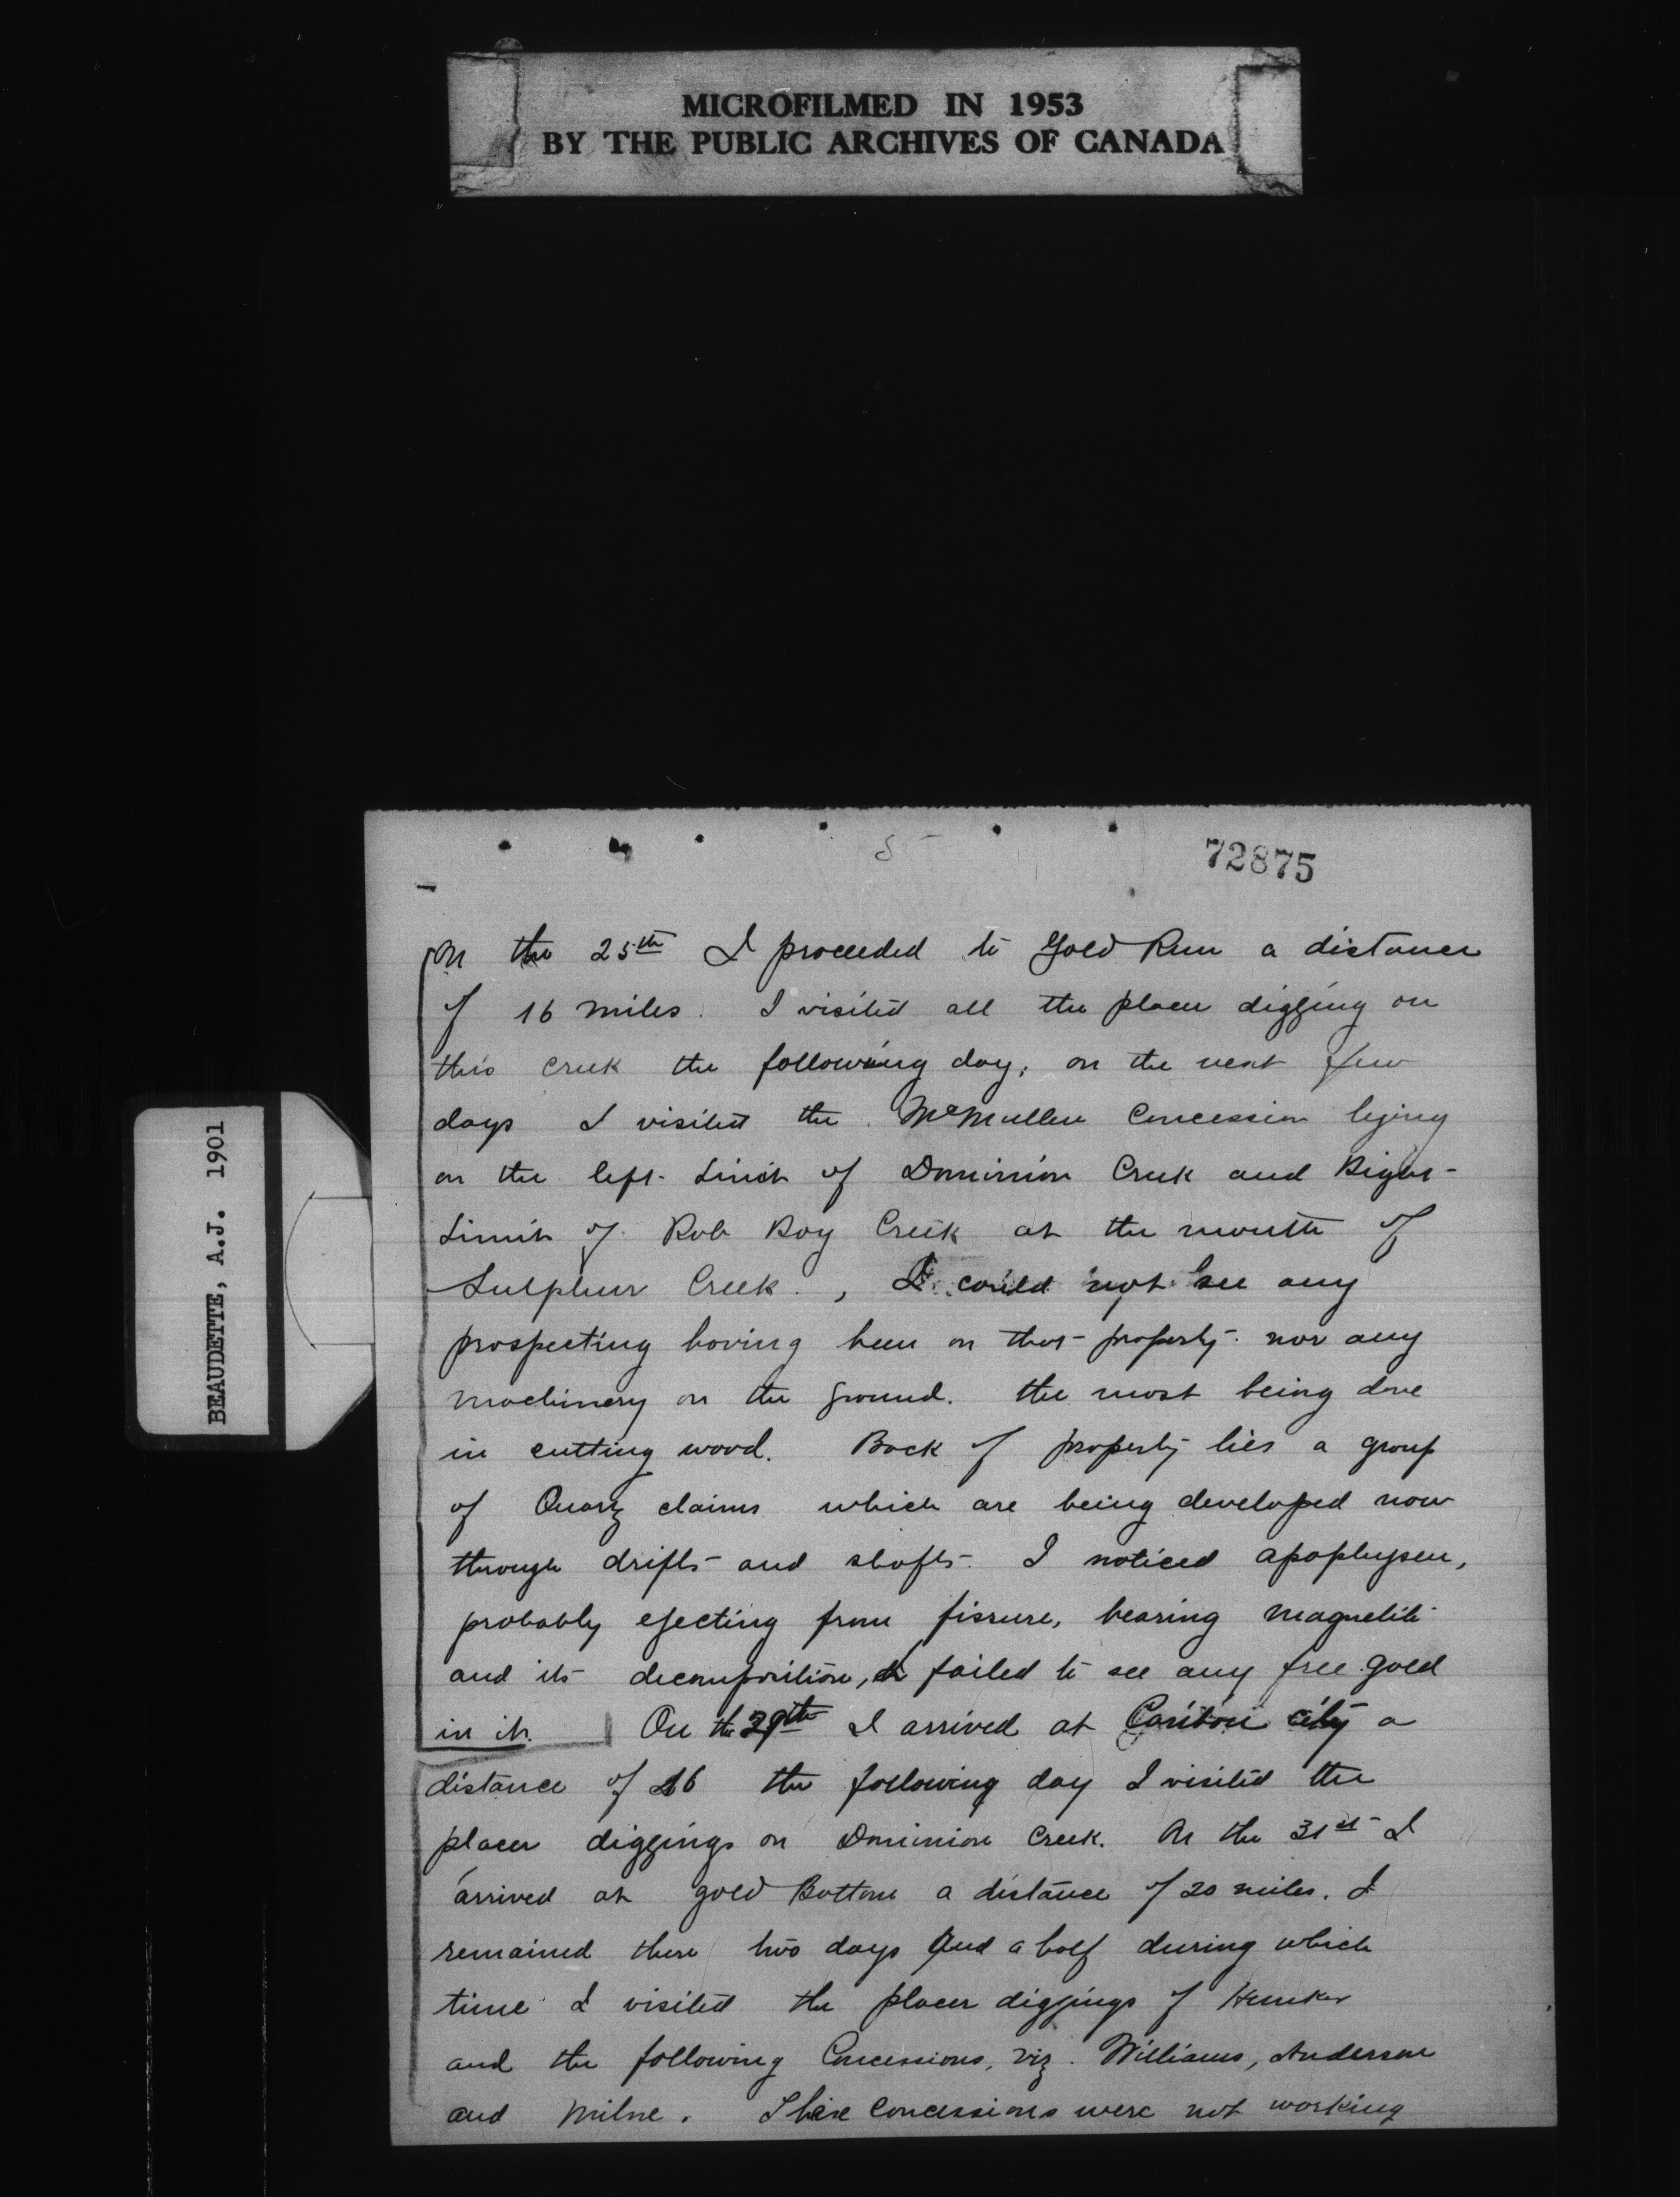 MICROFILMED IN 1953
BY THE PUBLIC ARCHIVES OF CANADA
BEAUDETTE, A.J. 1901
5
72875
On the 25th I proceeded to Gold Run a distance
of 16 miles. I visited all the placer digging on
this creek the following day, on the next few
days I visited the McMullen Concession lying
on the left Limit of Dominion Creek and Right
Limit of Rob Roy Creek at the mouth of
Sulphur Creek., I could not see any
prospecting having been on that property nor any
machinery on the ground. the most being done
in cutting wood. Back of property lies a group
of Quartz claims which are being developed now
through drifts and shafts. I noticed apophysen,
probably ejecting from fissure, bearing magnetite
and its decomposition, I failed to see any free gold
in it. On the 29th I arrived at Caribou city a
distance of 16 the following day I visited the
placer diggings on Dominion Creek. On the 31st I
arrived at Gold Bottom a distance of 20 miles. I
remained there two days and a half during which
time I visited the placer diggings of Hunker
and the following Concessions, viz. Williams, Anderson
and Milne. These Concessions were not working